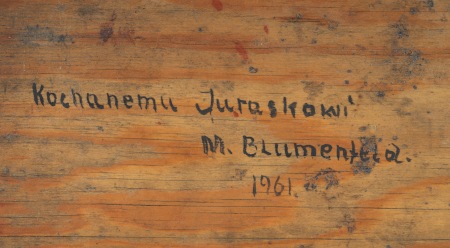 Kochanemu Juraskowi
M. Blumenfeld.
1961.